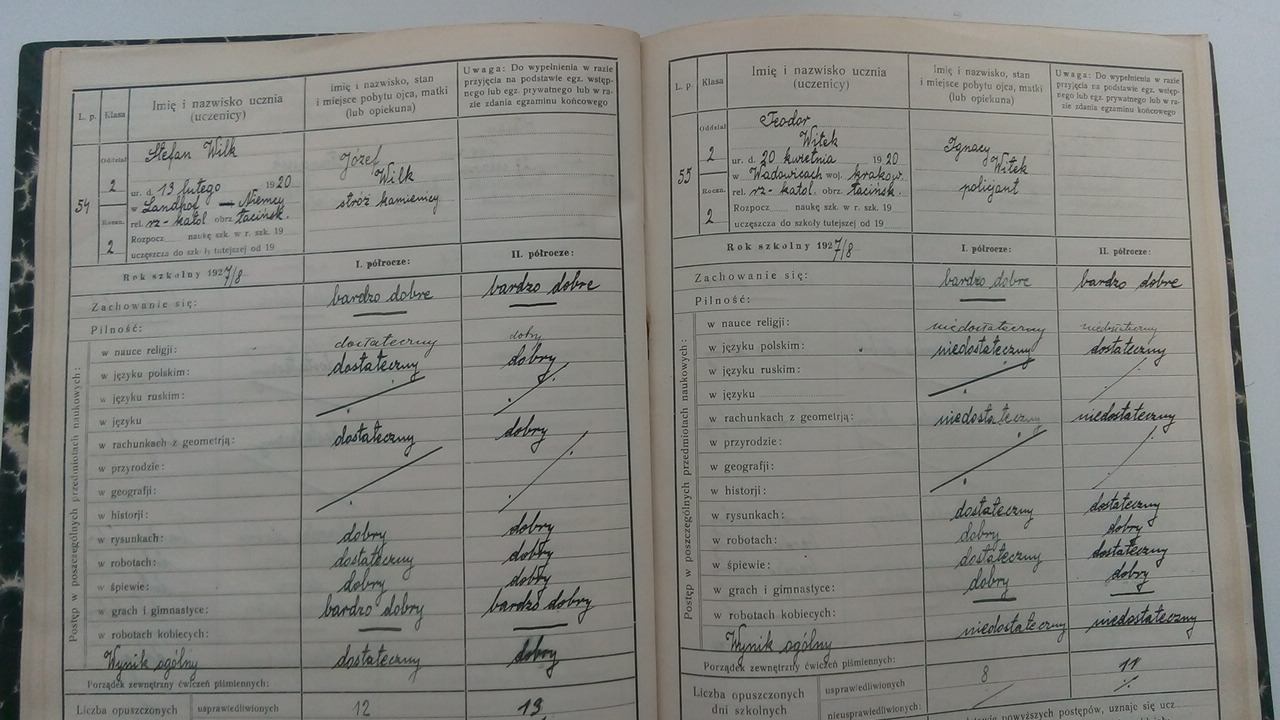 L. p.
Klasa
Imię i nazwisko ucznia
(uczenicy)
Imię i nazwisko, stan
i miejsce pobytu ojca, matki
(lub opiekuna)
Uwaga: Do wypełnienia w razie
przyjęcia na podstawie egz. wstęp-
nego lub egz. prywatnego lub w ra-
zie zdania egzaminu końcowego
54
Oddział
2
Roczn.
2
Stefan Wilk
ur. d. 13 lutego 1920
w Landhof — Niemcy
rel. rz-katol obrz. łacińsk.
Rozpocz. naukę szk. w r. szk. 19
uczęszcza do szkoły tutejszej od 19
Józef
Wilk
stróż kamienicy
Rok szkolny 1927/8
I. półrocze:
II. półrocze:
Zachowanie się: bardzo dobre bardzo dobre
Pilność:
Postęp w poszczególnych przedmiotach naukowych:
w nauce religji: dostateczny dobry
w języku polskim: dostateczny dobry
w języku ruskim:
w języku
w rachunkach z geometrją: dostateczny dobry
w przyrodzie:
w geografji:
w historji:
w rysunkach: dobry dobry
w robotach: dostateczny dobry
w śpiewie: dobry dobry
w grach i gimnastyce: bardzo dobry bardzo dobry
w robotach kobiecych:
Wynik ogólny dostateczny dobry
Porządek zewnętrzny ćwiczeń piśmiennych:
Liczba opuszczonych usprawiedliwionych 12 13
L. p.
Klasa
Imię i nazwisko ucznia
(uczenicy)
Imię i nazwisko, stan
i miejsce pobytu ojca, matki
(lub opiekuna)
Uwaga: Do wypełnienia w razie
przyjęcia na podstawie egz. wstęp-
nego lub egz. prywatnego lub w ra-
zie zdania egzaminu końcowego
55
Oddział
2
Roczn.
2
Teodor
Witek
ur. d. 20 kwietnia 1920
w Wadowicach woj. krakow.
rel. rz-katol. obrz. łacińsk.
Rozpocz. naukę szk. w r. szk. 19
uczęszcza do szkoły tutejszej od 19
Ignacy
Witek
policjant
Rok szkolny 1927/8
I. półrocze:
II. półrocze:
Zachowanie się: bardzo dobre bardzo dobre
Pilność:
Postęp w poszczególnych przedmiotach naukowych:
w nauce religji: niedostateczny niedostateczny
w języku polskim: niedostateczny dostateczny
w języku ruskim:
w języku
w rachunkach z geometrją: niedostateczny niedostateczny
w przyrodzie:
w geografji:
w historji:
w rysunkach: dostateczny dostateczny
w robotach: dobry dobry
w śpiewie: dostateczny dostateczny
w grach i gimnastyce: dobry dobry
w robotach kobiecych:
Wynik ogólny niedostateczny niedostateczny
Porządek zewnętrzny ćwiczeń piśmiennych:
Liczba opuszczonych
dni szkolnych
usprawiedliwionych 8 11
nieusprawiedliwionych
powyższych postępów, uznaje się ucz